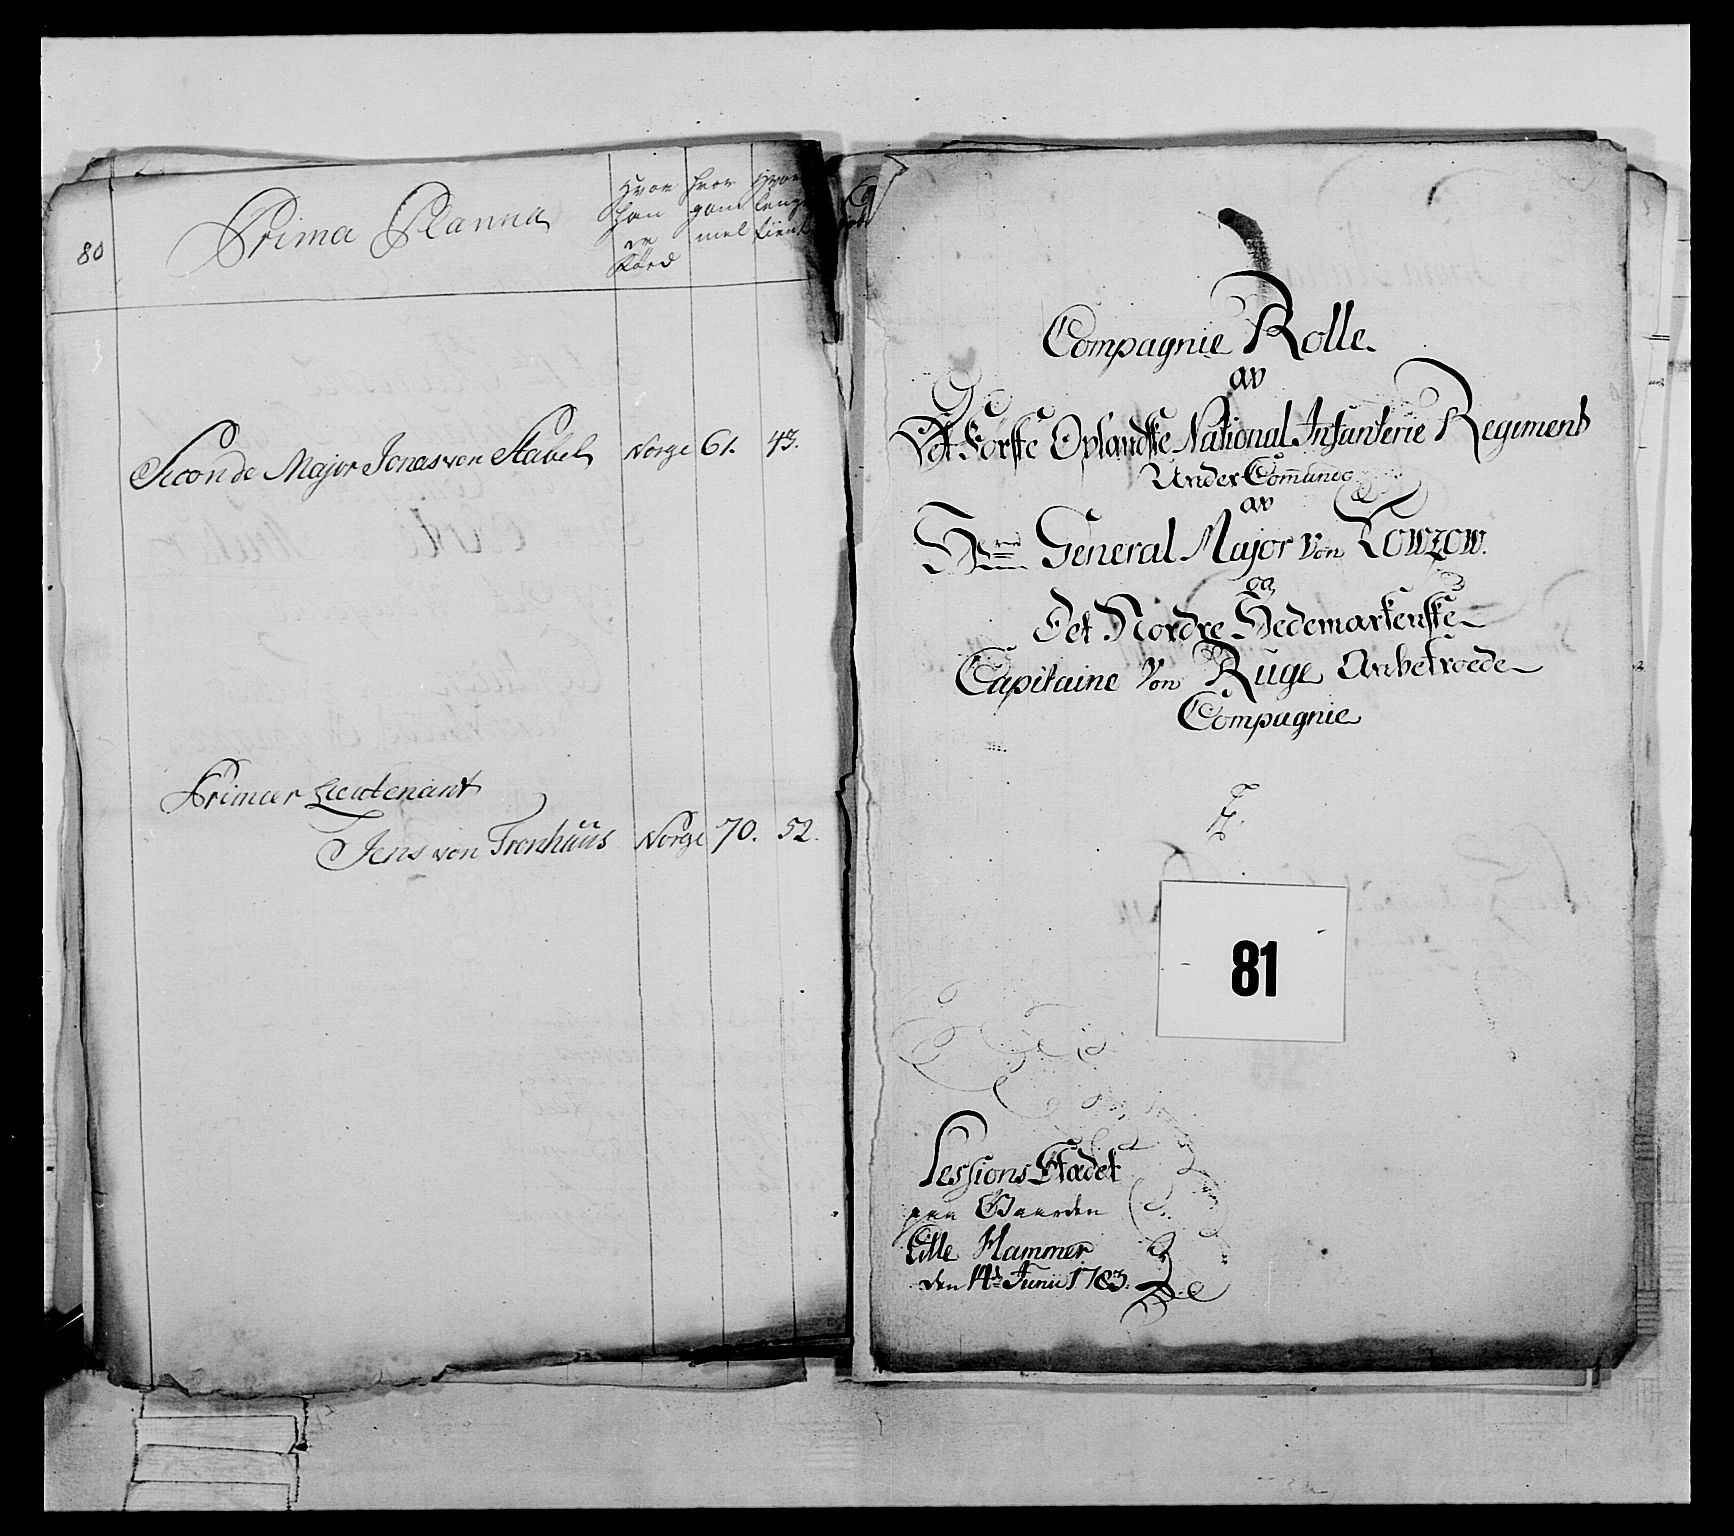 80
Prima Planna
Hvor han er Fød
hvor gammel
hvor lenge tient
Seconde Major Jonas von Stabel Norge 61. 43.
Primier Lieutenant
Jens von Tronhüüs Norge 70. 52.
Compagnie Rolle
av
Det Første Oplandske National Infanterie Regiment
Under Comando
av
Hrn General Major von Lowzow.
og
Det Nordre Hedemarkenske
Capitaine von Rüge Anbetroede
Compagnie
81
Sessions Stædet
paa Gaarden
Lille Hammer
den 14d Junii 1783.